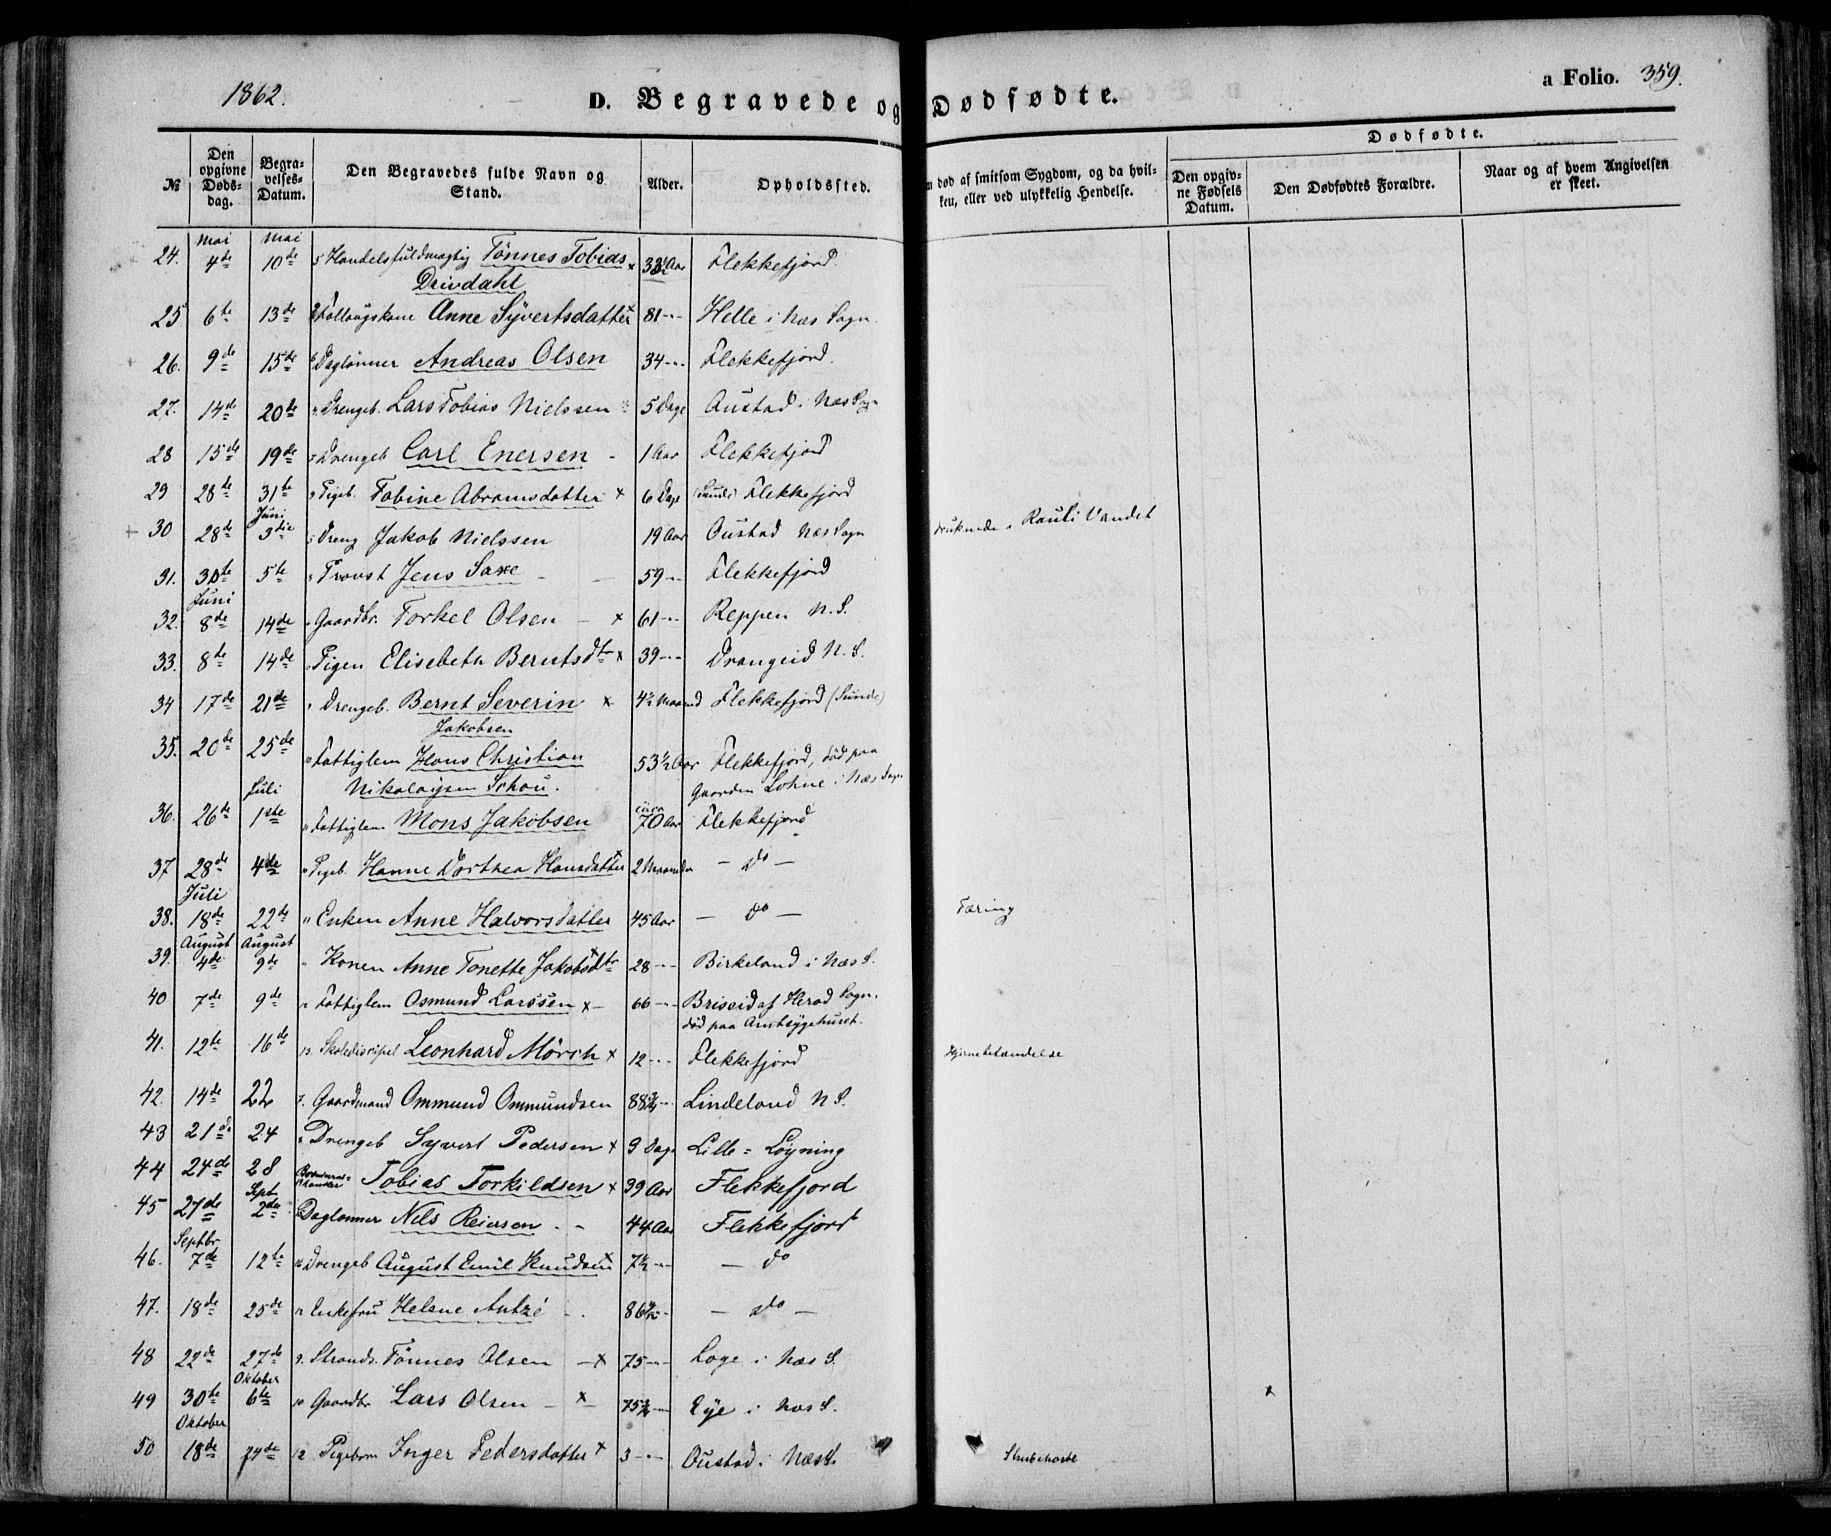 1862.
D. Begravede og Dødfødte.
a Folio. 359.
№
Den opgivne Døds-dag.
Begra-velses-Datum.
Den Begravedes fulde Navn og Stand.
Alder.
Opholdssted.
død af smitsom Sygdom, og da hvil-ken, eller ved ulykkelig Hendelse.
Dødfødte.
Den opgiv-ne Fødsels Datum.
Den Dødfødtes Forældre.
Naar og af hvem Angivelsen er skeet.
Mai Mai
24. 4de 10de Handelsfuldmægtig Tønnes Tobias x Aar Flekkefjord.
Drivdahl
25 6te 13de Anne Syvertsdatter 81 Helle i Næs Sogn.
26. 9de 15de Daglønner Andreas Olsen 34 Flekkefjord.
27. 14de 20de Drengeb. Lars Tobias Nielssen 5 Dage Austad i Næs Sogn
28 15de 19de Drengeb Carl Enersen 1 Aar Flekkefjord
29 28de 31te Pigeb. Tobine Abramsdatter x 6 Dage (Sunde) Flekkefjord
Juni
30 28de 3die Dreng Jakob Nielssen 19 Aar Oustad Næs Sogn druknede i Rauli Vandet
31. 30te 5te Provst Jens Saxe 59 Flekkefjord
Juni
32. 8de 14de Gaardbr. Torkel Olsen x 61 Reppen N. S.
33. 8de 14de Pigen Elisebeth Berntsdtr x 39 Drangeid N. S.
34 17de 21de Drengeb. Bernt Severin x 4½ Maaned Flekkefjord (Sunde)
Jakobsen
35. 20de 25de Fattiglem Hans Christian 53½ Aar Flekkefjord, død paa
Nikolaysen Schou. Gaarden Lohne i Næs Sogn
Juli
36. 26de 1ste Fattiglem Mons Jakobsen circa 70 Aar Flekkefjord
37 28de 4de Pigeb. Hanne Dorthea Hansdatter 2 Maaneder — do —
Juli
38. 18de 22de Enken Anne Halvorsdatter 45 Aar — do — Tæring
August August
39. 4de 9de Konen Anne Tonette Jakobsdtr 28 Birkeland i Næs S.
40 7de 9de Fattiglem Osmund Larssen x 66 Briseid af Herad Sogn.
død paa Amtsygehuset.
41. 12te 16de Skolediscipel Leonhard Mörch x 12 Flekkefjord Hjernebetændelse
42. 14de 22 Gaardmand Ommund Ommundsen 88¾ Lindeland N S.
43 21de 24 Drengeb Syvert Pedersen x 9 Dage Lille = Løyning
44 24de 28 Tobias Torkildsen x 39 Aar Flekkefjord
Sept
45 27de 2de Daglønner Nils Reiersen 44 Aar Flekkefjord
Septbr
46. 7de 12te Drengeb August Emil Knudsen x 7½ — do
47. 18de 25de Enkefru Helene 86 — do —
48 22de 27de Strands. Tønnes Olsen x 75 Loge i Næs S.
Oktober
49 30te 6te Gaardbr Lars Olsen x 75¾ Eye i Næs S.
Oktober
50 18de 24de Pigebarn Inger Pedersdatter x 3 Oustad i Næs S. Strubehoste